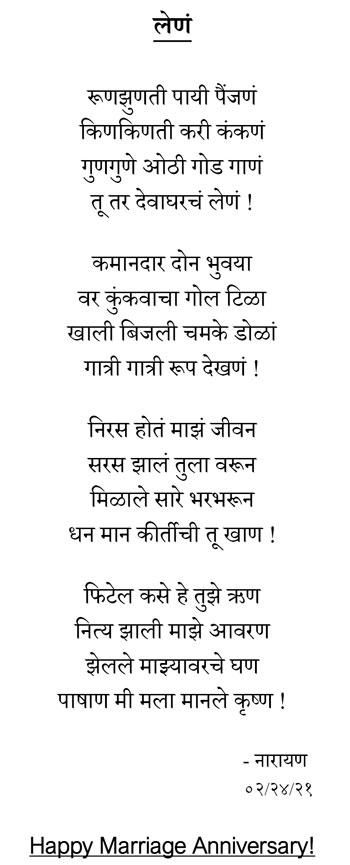 लेणं
रूणझुणती पायी पैंजणं
किणकिणती करी कंकणं
गुणगुणे ओठी गोड गाणं
तू तर देवाघरचं लेणं !
कमानदार दोन भुवया
वर कुंकवाचा गोल टिळा
खाली बिजली चमके डोळां
गात्री गात्री रूप देखणं !
निरस होतं माझं जीवन
सरस झालं तुला वरून
मिळाले सारे भरभरून
धन मान कीर्तीची तू खाण !
फिटेल कसे हे तुझे ऋण
नित्य झाली माझे आवरण
झेलले माझ्यावरचे घण
पाषाण मी मला मानले कृष्ण !
- नारायण
०२/२४/२१
Happy Marriage Anniversary!